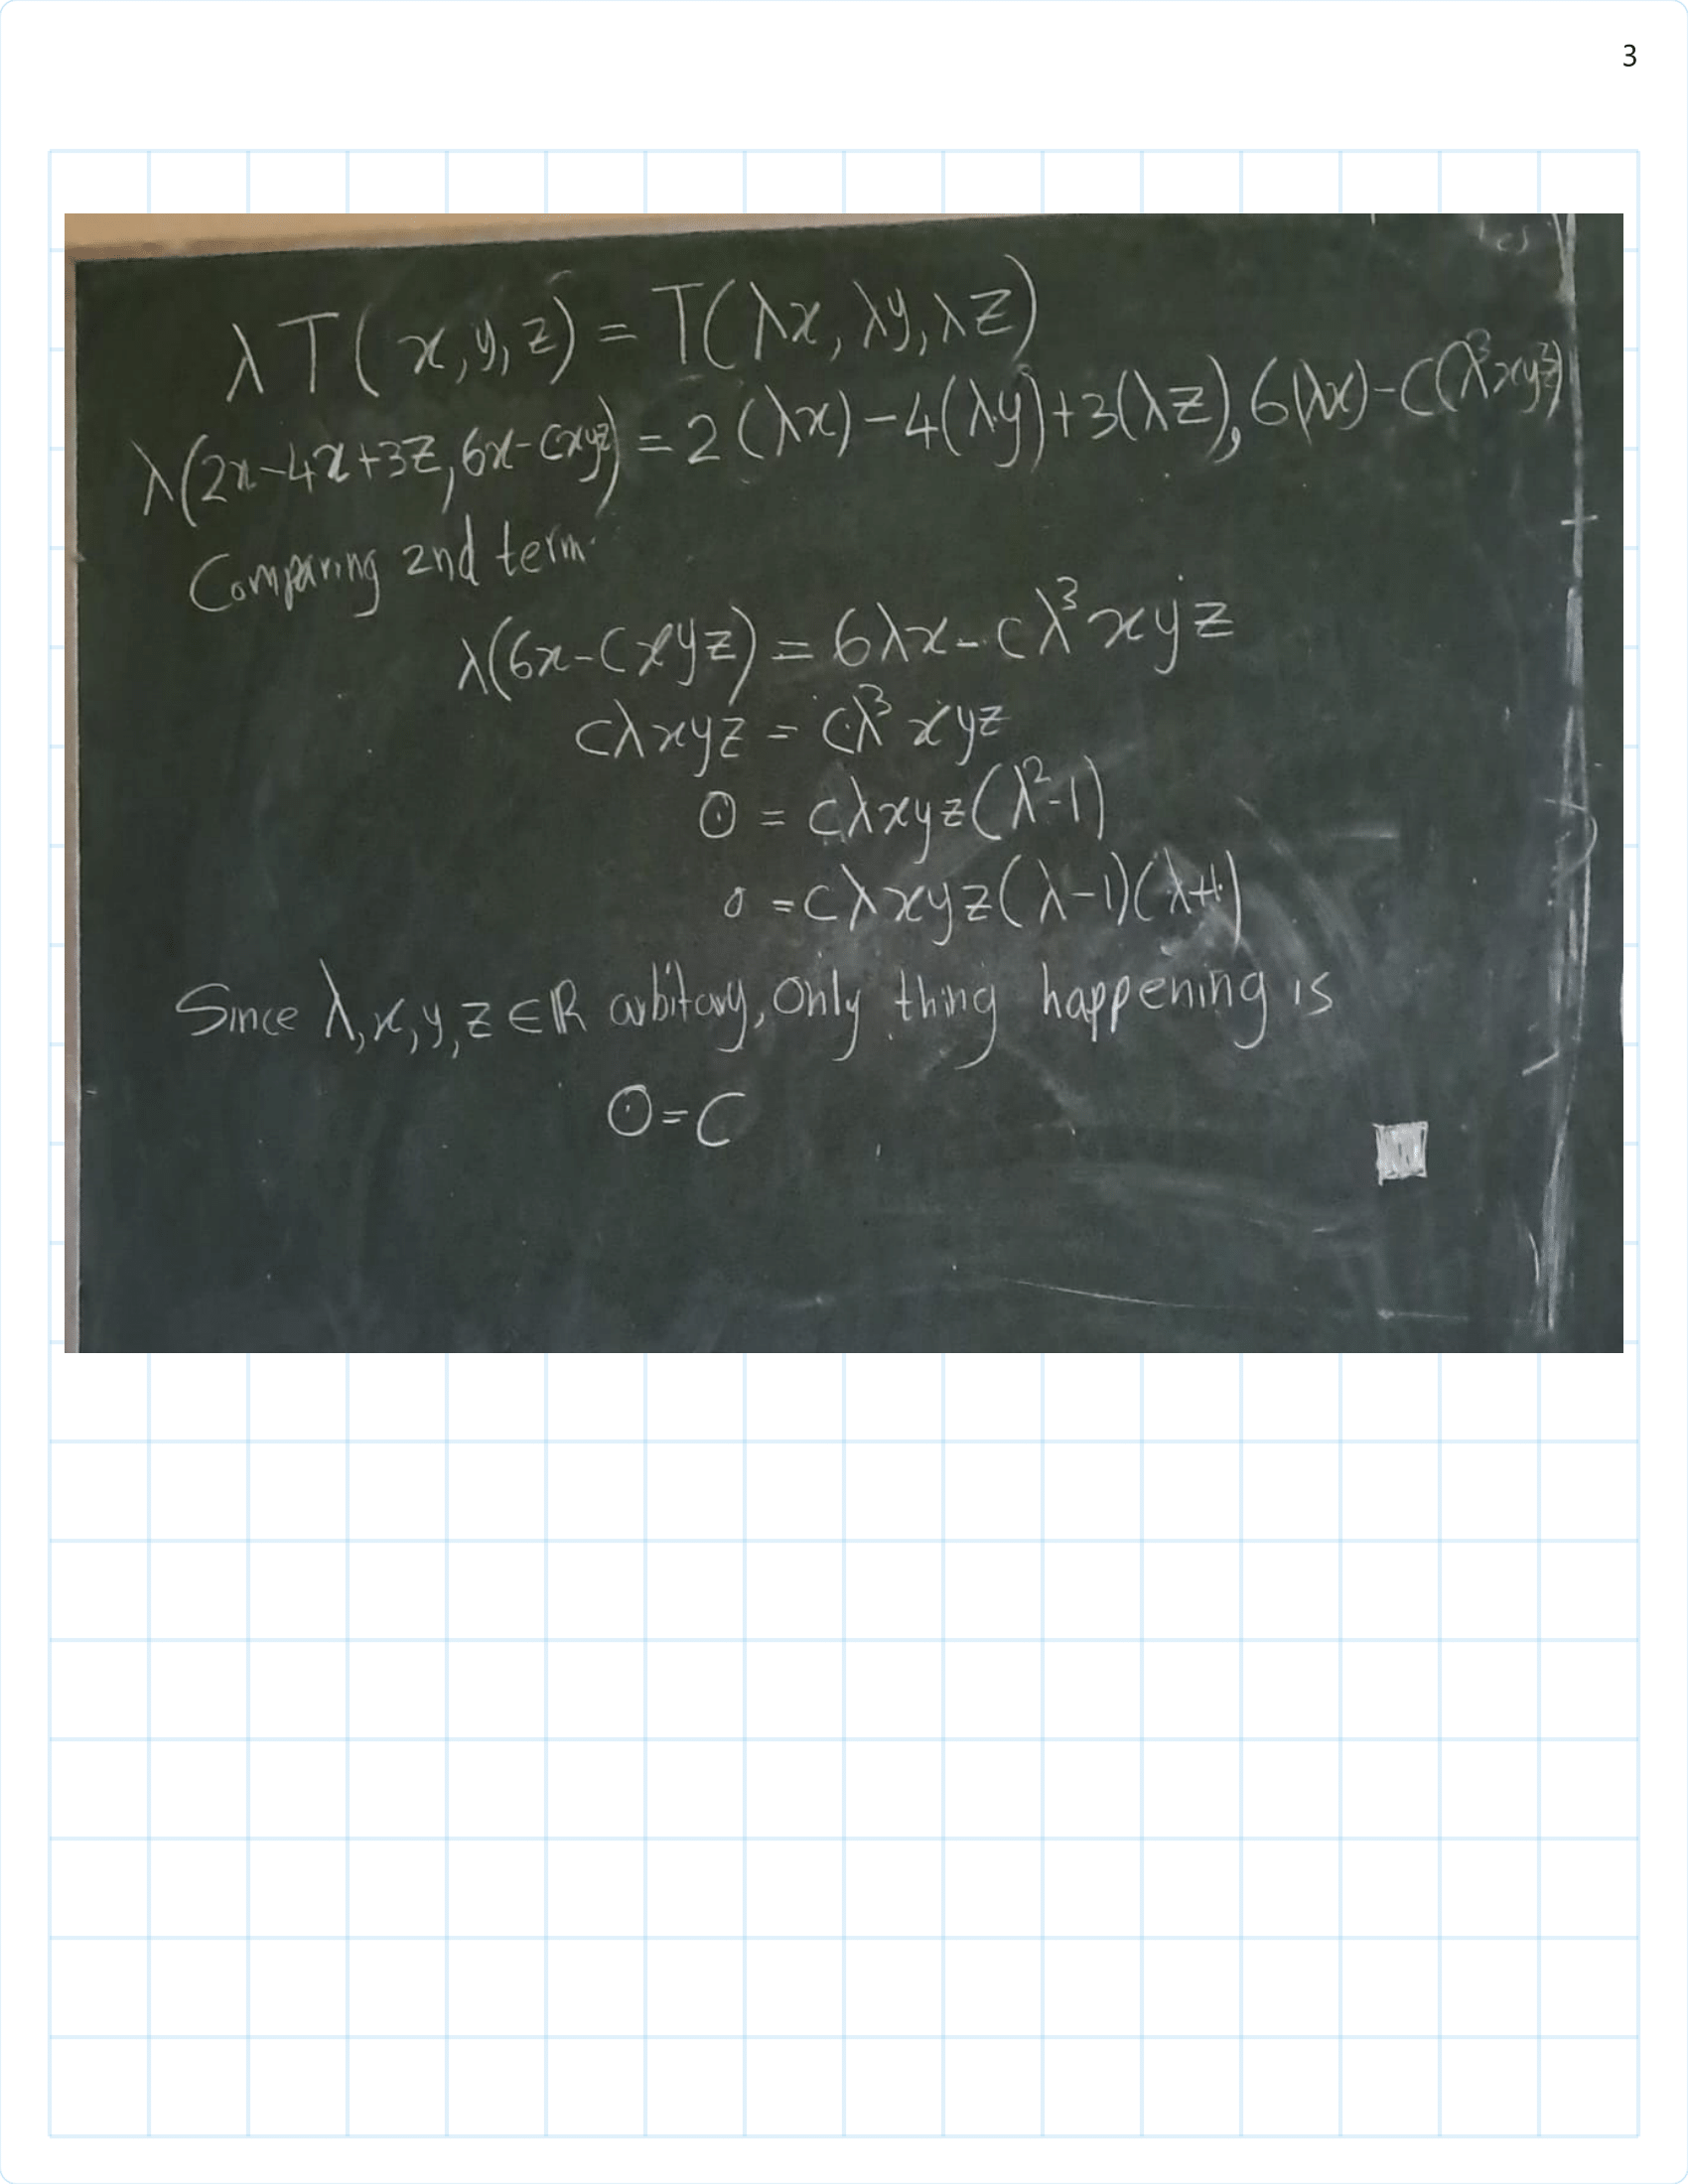 3
λT(x,y,z) = T(λx, λy, λz)
λ(2x-4x+3z, 6x-cxyz) = 2(λx)-4(λy)+3(λz), 6(λx)-c(λ³xyz)
Comparing 2nd term.
λ(6x-cxyz) = 6λx-cλ³xyz
cλxyz = cλ³xyz
0 = cλxyz(λ²-1)
0 = cλxyz(λ-1)(λ+1)
Since λ,x,y,z ∈ ℝ arbitary, only thing happening is
0=C